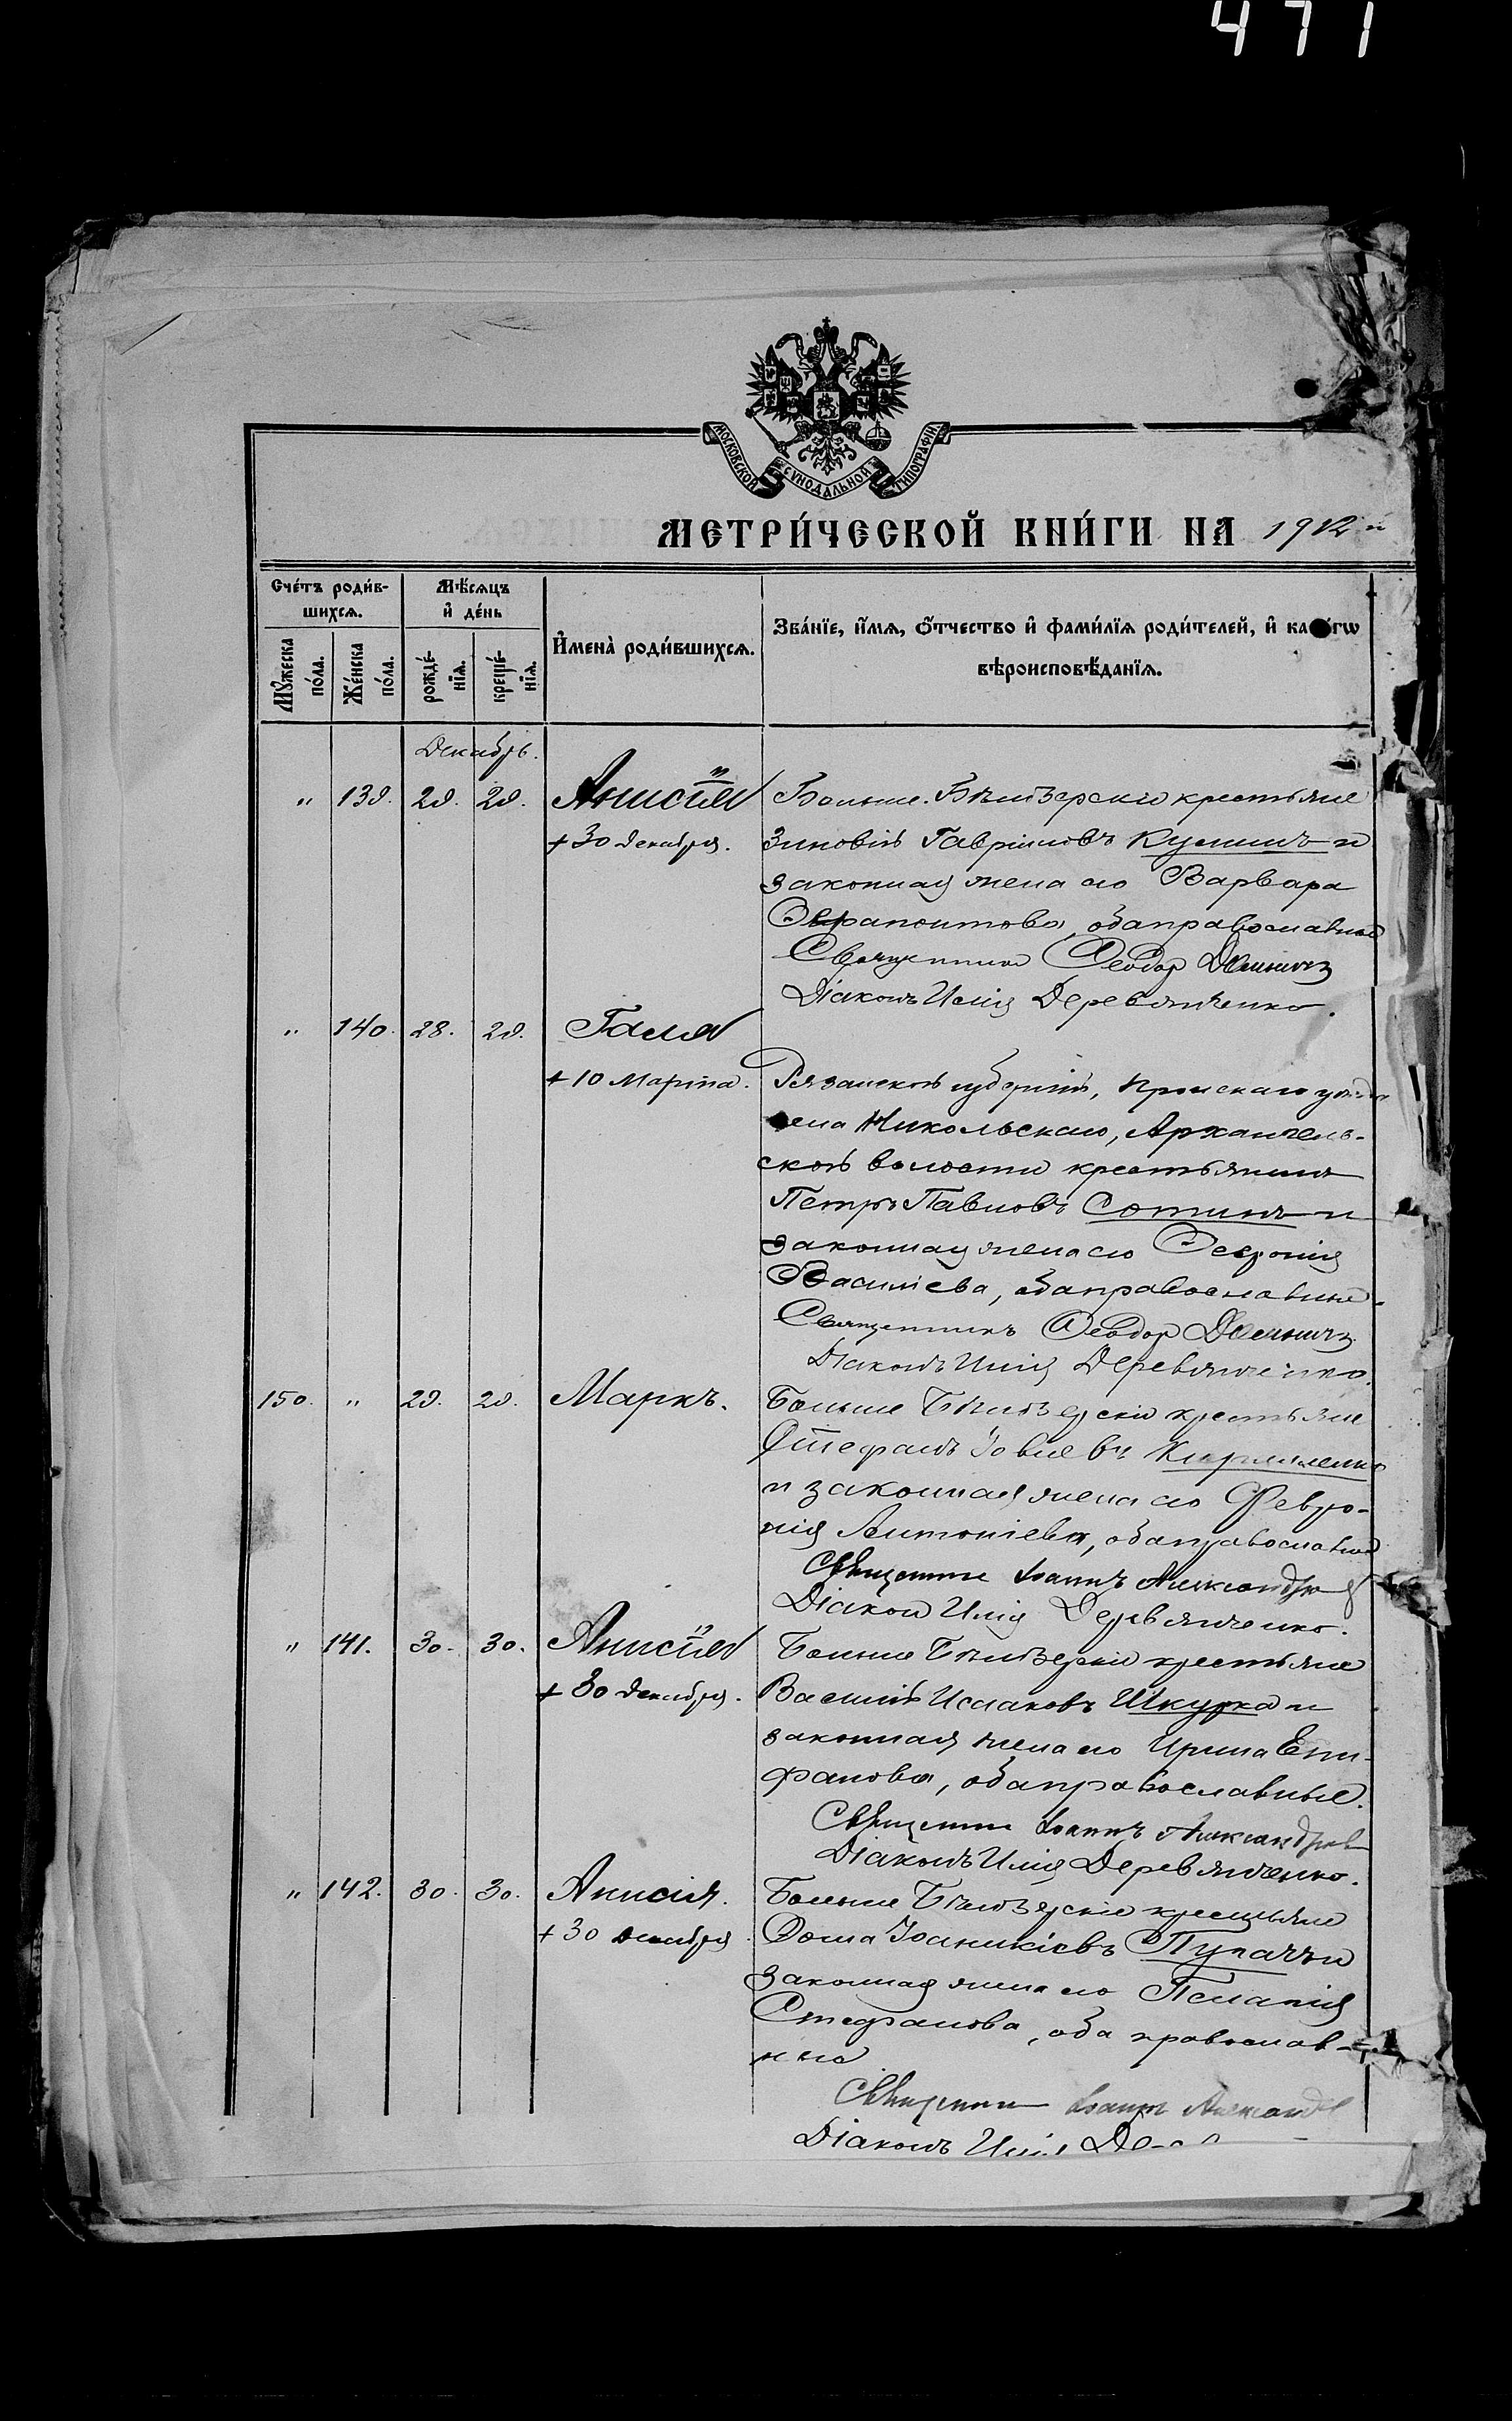 471
МОСКОВСКОЙ СѴНОДАЛЬНОЙ ТИПОГРАФІИ
МЕТРИ́ЧЕСКОЙ КНИ́ГИ НА 1912 й
Сче́тъ роди́в-
шихся.
Мѣ́сяцъ
и҆ де́нь
Мꙋ́жеска
по́ла.
Же́нска
по́ла.
рожде́-
нїѧ.
креще́-
нїѧ.
И҆мена̀ роди́вшихсѧ.
Зва́нїе, и҆́мѧ, ѻ҆́тчество и҆ фами́лїѧ роди́телей, и҆ како́гѡ
вѣроисповѣ́данїѧ.
Декабрь.
" 139. 29. 29. Анисія Больше-Бѣлозерскіе крестьяне
+ 30 декабря. Зиновій Гавріиловъ Кулишъ и
законная жена его Варвара
Ферапонтова, оба православные
Священникъ Ѳеодор
Діаконъ Илія Деревянченко.
" 140. 28. 29. Галя
+ 10 Марта. Рязанской губерніи, Пронскаго уѣзда
села Никольскаго, Архангель-
ской волости крестьянинъ
Петръ Павловъ Сотинъ и
законная жена его Феврония
Василіева, оба православные.
Священникъ Ѳеодор
Діаконъ Илія Деревянченко.
150. " 29. 29. Маркъ. Больше Бѣлозерскіе крестьяне
Стефанъ Іовлевъ Кирпиленко
и законная жена его Февро-
нія Антоніева, оба православные
Священник Іоаннъ Александров
Діакон Илія Деревянченко.
" 141. 30. 30. Анисія Больше Бѣлозерскіе крестьяне
+ 30 декабря. Василій Исааковъ Шкурка и
законная жена его Ирина Епи-
фанова, оба православные.
Священник Іоаннъ Александров
Діаконъ Илія Деревянченко.
" 142. 30. 30. Анисія. Больше Бѣлозерскіе крестьяне
+ 30 декабря. Фома Іоанникіевъ Пугачъ и
законная жена его Пелагія
Стефанова, оба православ-
ные
Священник Іоанн Александ
Діаконъ Илія